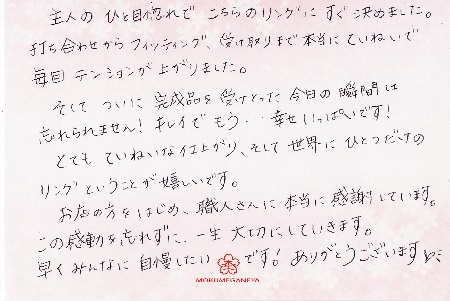 主人の ひと目惚れで こちらのリングに すぐ 決めました。
打ち合わせから フィッティング、受け取りまで 本当に ていねいで
毎回 テンションが 上がりました。
そして ついに 完成品を 受けとった 今日の 瞬間は
忘れられません! キレイで もう・・ 幸せいっぱいです!
とても ていねいな 仕上がり、そして 世界に ひとつだけの
リング ということが 嬉しいです。
お店の方を はじめ、職人さんに 本当に 感謝しています。
この 感動を 忘れずに、一生 大切に していきます。
早く みんなに 自慢したいです! ありがとうございます
MOKUMEGANEYA